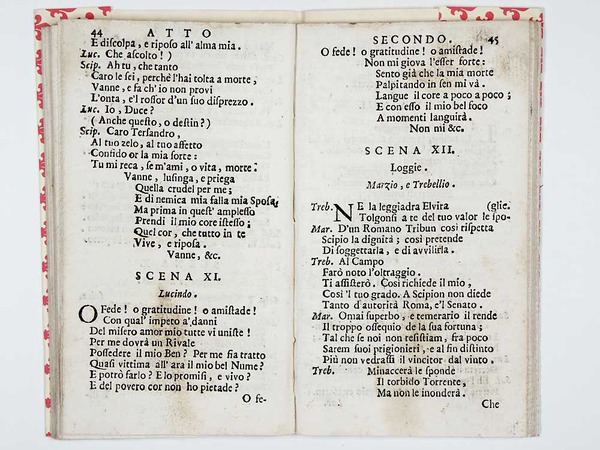 44 ATTO
E discolpa, e riposo all' alma mia.
Luc. Che ascolto! )
Scip. Ah tu, che tanto
Caro le sei, perchè l'hai tolta a morte,
Vanne, e fa ch' io non provi
L'onta, e'l rossor d'un suo disprezzo.
Luc. Io, Duce?
( Anche questo, o destin? )
Scip. Caro Tersandro,
Al tuo zelo, al tuo affetto
Confido or la mia sorte:
Tu mi reca, se m'ami, o vita, morte.
Vanne, lusinga, e priega
Quella crudel per me;
E di nemica mia falla mia Sposa,
Ma prima in quest' amplesso
Prendi il mio core istesso;
Quel cor, che tutto in te
Vive, e riposa.
Vanne, &c.
SCENA XI.
Lucindo.
O Fede! o gratitudine! o amistade!
Con qual' impeto a' danni
Del misero amor mio tutte vi uniste!
Per me dovrà un Rivale
Possedere il mio Ben? Per me fia tratto
Quasi vittima all' ara il mio bel Nume?
E potrò farlo? E lo promisi, e vivo?
E del povero cor non ho pietade?
O fe-
SECONDO. 45
O fede! o gratitudine! o amistade!
Non mi giova l'esser forte:
Sento già che la mia morte
Palpitando in sen mi và.
Langue il core a poco a poco;
E con esso il mio bel foco
A momenti languirà.
Non mi &c.
SCENA XII.
Loggie.
Marzio, e Trebellio.
Treb. NE la leggiadra Elvira (glie.
Tolgonsi a te del tuo valor le spo-
Mar. D'un Romano Tribun così rispetta
Scipio la dignità; così pretende
Di soggettarla, e di avvilirla.
Treb. Al Campo
Farò noto l'oltraggio.
Ti assisterò. Così richiede il mio,
Così 'l tuo grado. A Scipion non diede
Tanto d'autorità Roma, e'l Senato.
Mar. Omai superbo, e temerario il rende
Il troppo ossequio de la sua fortuna;
Tal che se noi non resistiam, fra poco
Sarem suoi prigionieri, e al fin distinto
Più non vedrassi il vincitor dal vinto.
Treb. Minaccerà le sponde
Il torbido Torrente,
Ma non le inonderà.
Che